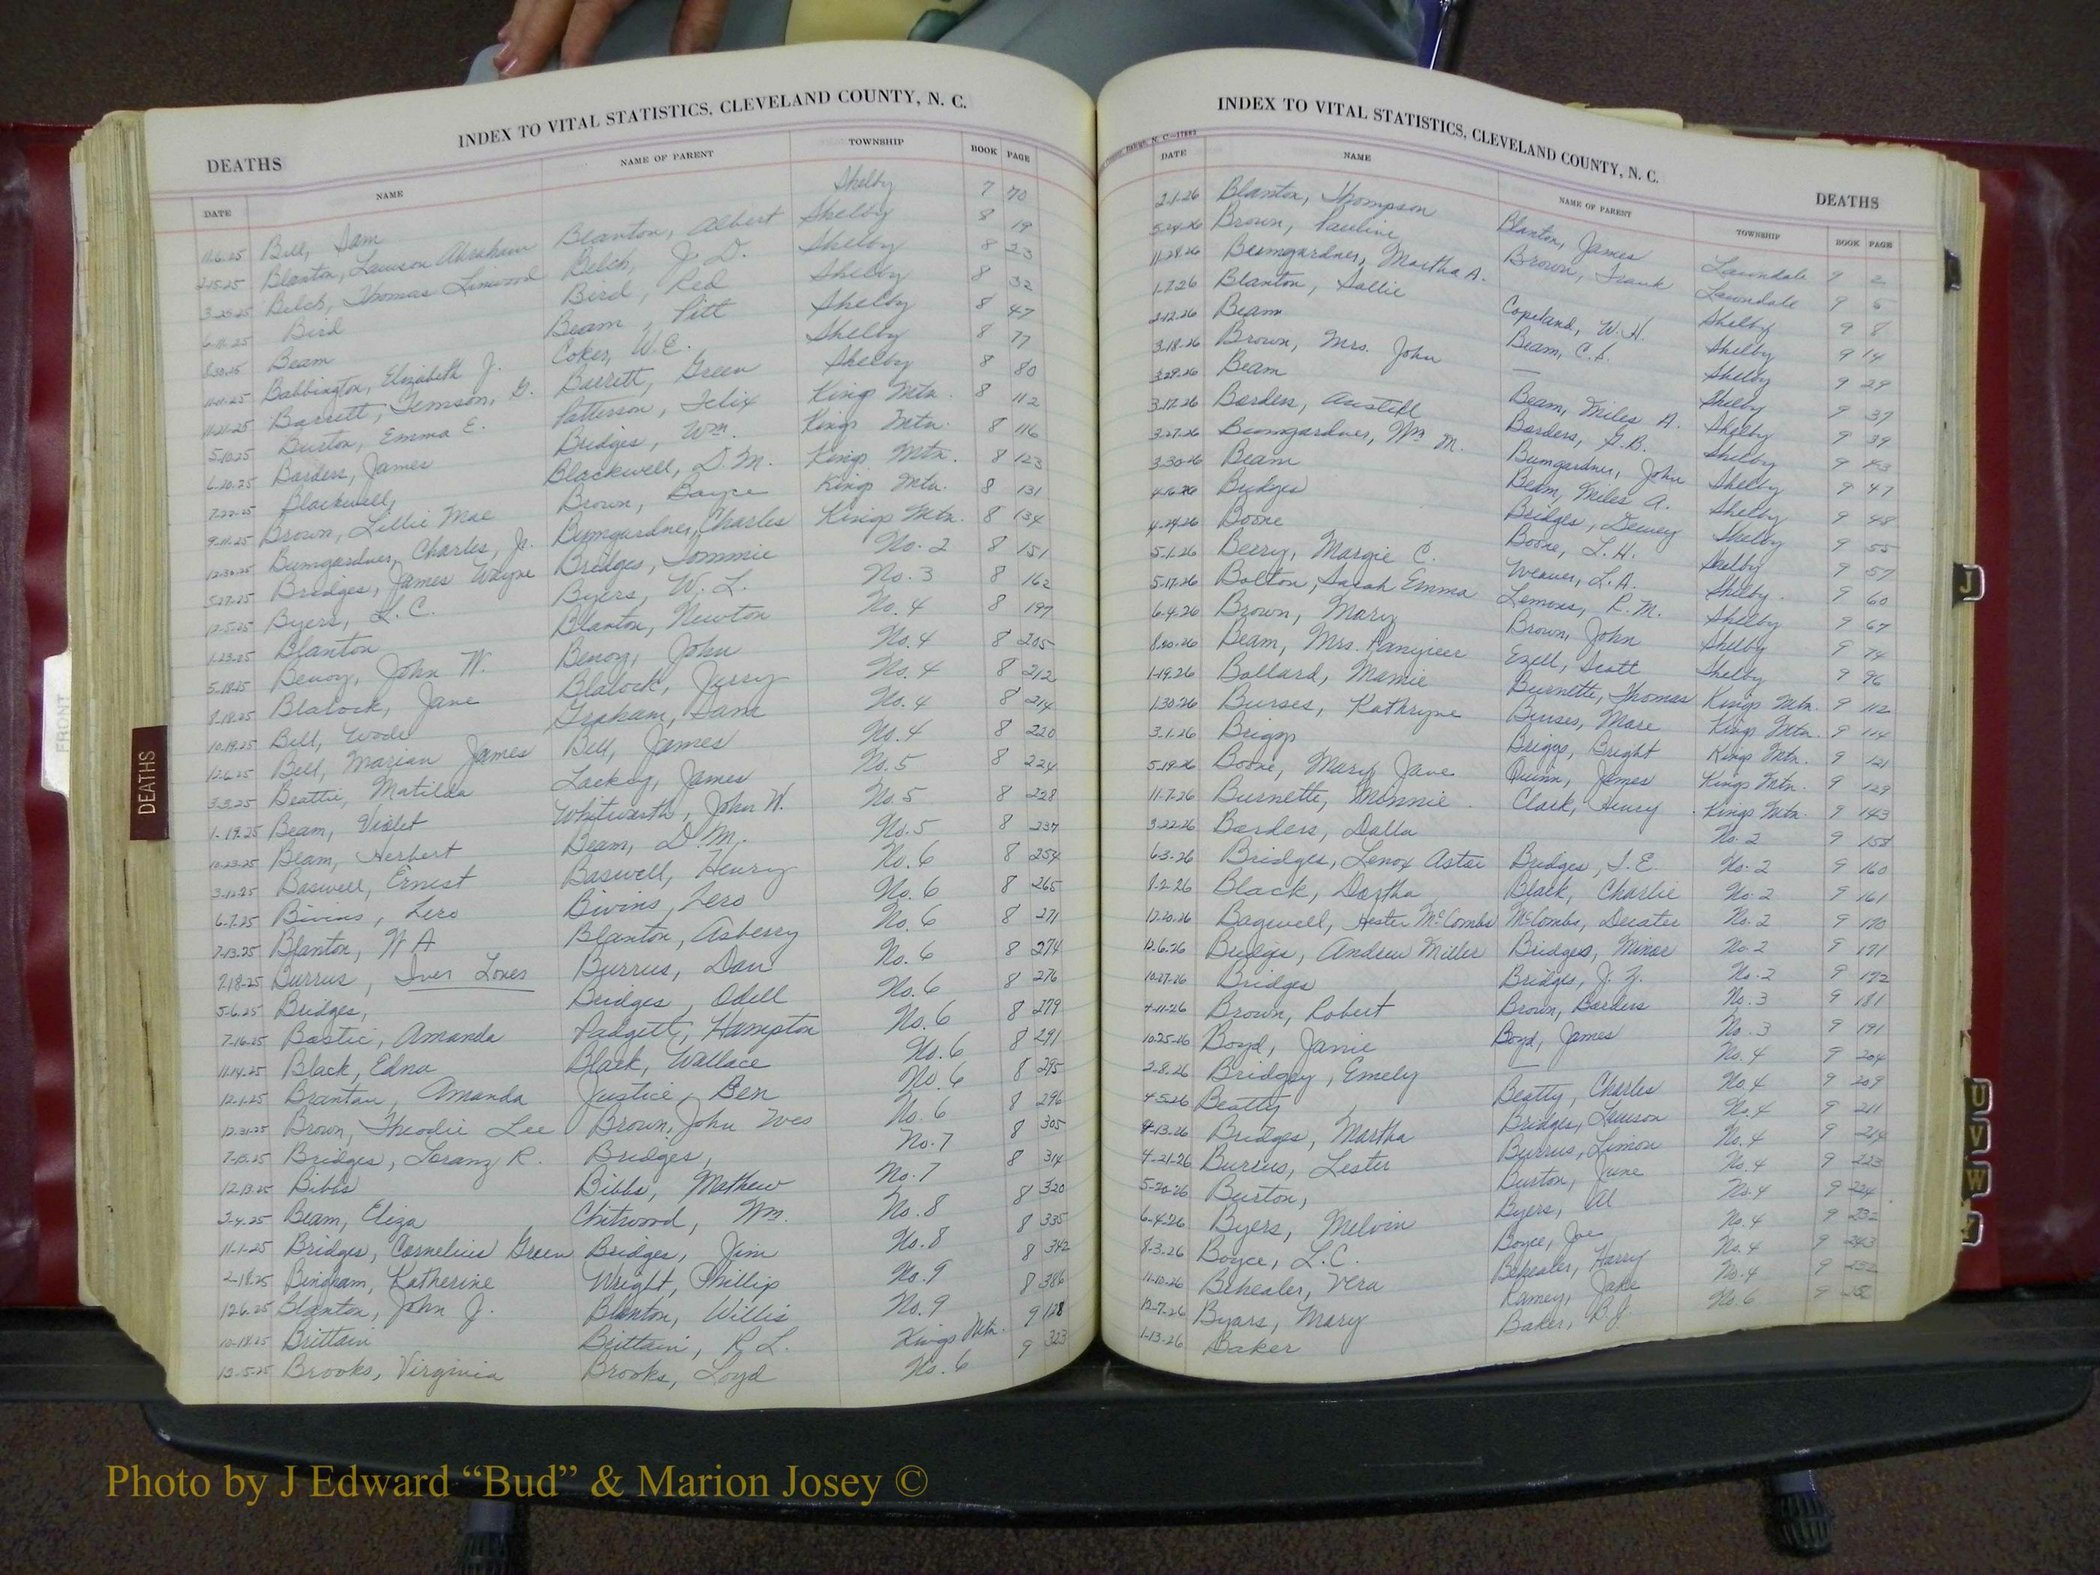 INDEX TO VITAL STATISTICS, CLEVELAND COUNTY, N. C.
DEATHS
DATE NAME NAME OF PARENT TOWNSHIP BOOK PAGE
11.6.25 Bell, Sam Shelby 7 70
2-15-25 Blanton, Lawson Abraham Blanton, Albert Shelby 8 19
3-25-25 Belch, Thomas Linwood Belch, J. D. Shelby 8 23
6-11-25 Bird Bird, Red Shelby 8 32
8.30.25 Beam Beam, Pitt Shelby 8 47
11-11-25 Babbington, Elizabeth J. Coker, W.E. Shelby 8 77
11-21-25 Barrett, Temson, G. Barrett, Green Shelby 8 80
5-10.25 Burton, Emma E. Patterson, Felix Kings Mtn. 8 112
6-20.25 Borders, James Bridges, Wm. Kings Mtn. 8 116
7-22-25 Blackwell, Blackwell, D. M. Kings Mtn. 8 123
9-11.25 Brown, Lillie Mae Brown, Boyce Kings Mtn. 8 131
12-30-25 Bumgardner, Charles, Jr. Bumgardner, Charles Kings Mtn. 8 134
5-27-25 Bridges, James Wayne Bridges, Tommie No. 2 8 151
12-5-25 Byers, L. C. Byers, W. L. No. 3 8 162
1-23-25 Blanton Blanton, Newton No. 4 8 197
5-18-25 Benoy, John W. Benoy, John No. 4 8 205
8-18-25 Blalock, Jane Blalock, Jerry No. 4 8 212
10-19-25 Bell, Wode Graham, Dave No. 4 8 214
12-6-25 Bell, Marian James Bell, James No. 4 8 220
3-3-25 Beattie, Matilda Lackey, James No. 5 8 224
1-19-25 Beam, Violet Whitworth, John W. No. 5 8 228
10-23-25 Beam, Herbert Beam, D. M. No. 5 8 237
3-12-25 Baswell, Ernest Baswell, Henry No. 6 8 254
6-7-25 Bivins, Zero Bivins, Zero No. 6 8 265
2-13-25 Blanton, W A Blanton, Asberry No. 6 8 271
7-18-25 Burrus, Burrus, Dan No. 6 8 274
5-6-25 Bridges, Bridges, Odell No. 6 8 276
7-16-25 Bostic, Amanda Padgett, Hampton No. 6 8 279
11-14-25 Black, Edna Black, Wallace No. 6 8 291
12-1-25 Amanda Justice, Ben No. 6 8 295
12-31-25 Brown, Theodie Lee Brown, John Wes No. 6 8 296
7-13-25 Bridges, Loranz R. Bridges, No. 7 8 305
12-13-25 Bibbs Bibbs, Mathew No. 7 8 314
2-4-25 Beam, Eliza Chitwood, Wm. No. 8 8 320
11-1-25 Bridges, Cornelius Green Bridges, Jim No. 8 8 335
2-18-25 Bingham, Katherine Wright, Phillip No. 9 8 342
12-6-25 Blanton, John J. Blanton, Willis No. 9 8 386
10-18-25 Brittain Brittain, R L. Kings Mtn. 9 128
12-5-25 Brooks, Virginia Brooks, Loyd No. 6 9 323
INDEX TO VITAL STATISTICS, CLEVELAND COUNTY, N. C.
DEATHS
DATE NAME NAME OF PARENT TOWNSHIP BOOK PAGE
2-1-26 Blanton, Thompson Blanton, James Lawndale 9 2
5-24-26 Brown, Pauline Brown, Frank Lawndale 9 5
11-28-26 Bumgardner, Martha A. Shelby 9 8
1-7-26 Blanton, Sallie Copeland, W. H. Shelby 9 14
2-12-26 Beam Beam, C. S. Shelby 9 29
3-18-26 Brown, Mrs. John — Shelby 9 37
3-29-26 Beam Beam, Miles A. Shelby 9 39
3-17-26 Borders, Borders, G. B. Shelby 9 43
3-27-26 Bumgardner, Wm M. Bumgardner, John Shelby 9 47
3-30-26 Beam Beam, Miles A. Shelby 9 48
4-16-26 Bridges Bridges, Dewey Shelby 9 55
4-24-26 Boone Boone, L. H. Shelby 9 57
5-1-26 Berry, Margie C. Weaver, L. A. Shelby 9 60
5-17-26 Bolton, Sarah Emma Lemons, R. M. Shelby 9 67
6-4-26 Brown, Mary Brown, John Shelby 9 74
8-20-26 Beam, Mrs. Ezell, Scott Shelby 9 96
1-19-26 Ballard, Mamie Burnette, Thomas Kings Mtn. 9 112
1-30-26 Burses, Kathryne Burses, Mare Kings Mtn. 9 114
3-1-26 Briggs Briggs, Bright Kings Mtn. 9 121
5-19-26 Boone, Mary Jane Quinn, James Kings Mtn. 9 129
11-7-26 Burnette, Minnie Clark, Henry Kings Mtn. 9 143
3-22-26 Borders, Dalla No. 2 9 158
6-3-26 Bridges, Lenox Astor Bridges, I. E. No. 2 9 160
8-2-26 Black, Dortha Black, Charlie No. 2 9 161
12-20-26 Bagwell, Hester McCombs McCombs, Decater No. 2 9 170
12-6-26 Bridges, Andrew Miller Bridges, Minor No. 2 9 171
10-27-26 Bridges Bridges, J. Z. No. 2 9 172
4-11-26 Brown, Robert Brown, Borders No. 3 9 181
10-25-26 Boyd, Janie Boyd, James No. 3 9 191
2-8-26 Bridgey, Emely — No. 4 9 204
4-5-26 Beatty Beatty, Charles No. 4 9 209
4-13-26 Bridges, Martha Bridges, Lawson No. 4 9 211
4-21-26 Burrus, Lester Burrus, Limon No. 4 9 214
5-20-26 Burton, Burton, June No. 4 9 223
6-4-26 Byers, Melvin Byers, Al No. 4 9 224
8-3-26 Boyce, L. C. Boyce, Joe No. 4 9 232
11-10-26 Beheler, Vera Beheler, Harry No. 4 9 243
12-7-26 Byars, Mary Ramey, Jake No. 4 9
1-13-26 Baker Baker, B. J. No. 6 9
DEATHS
FRONT
J
U
V
W
Photo by J Edward “Bud” & Marion Josey ©